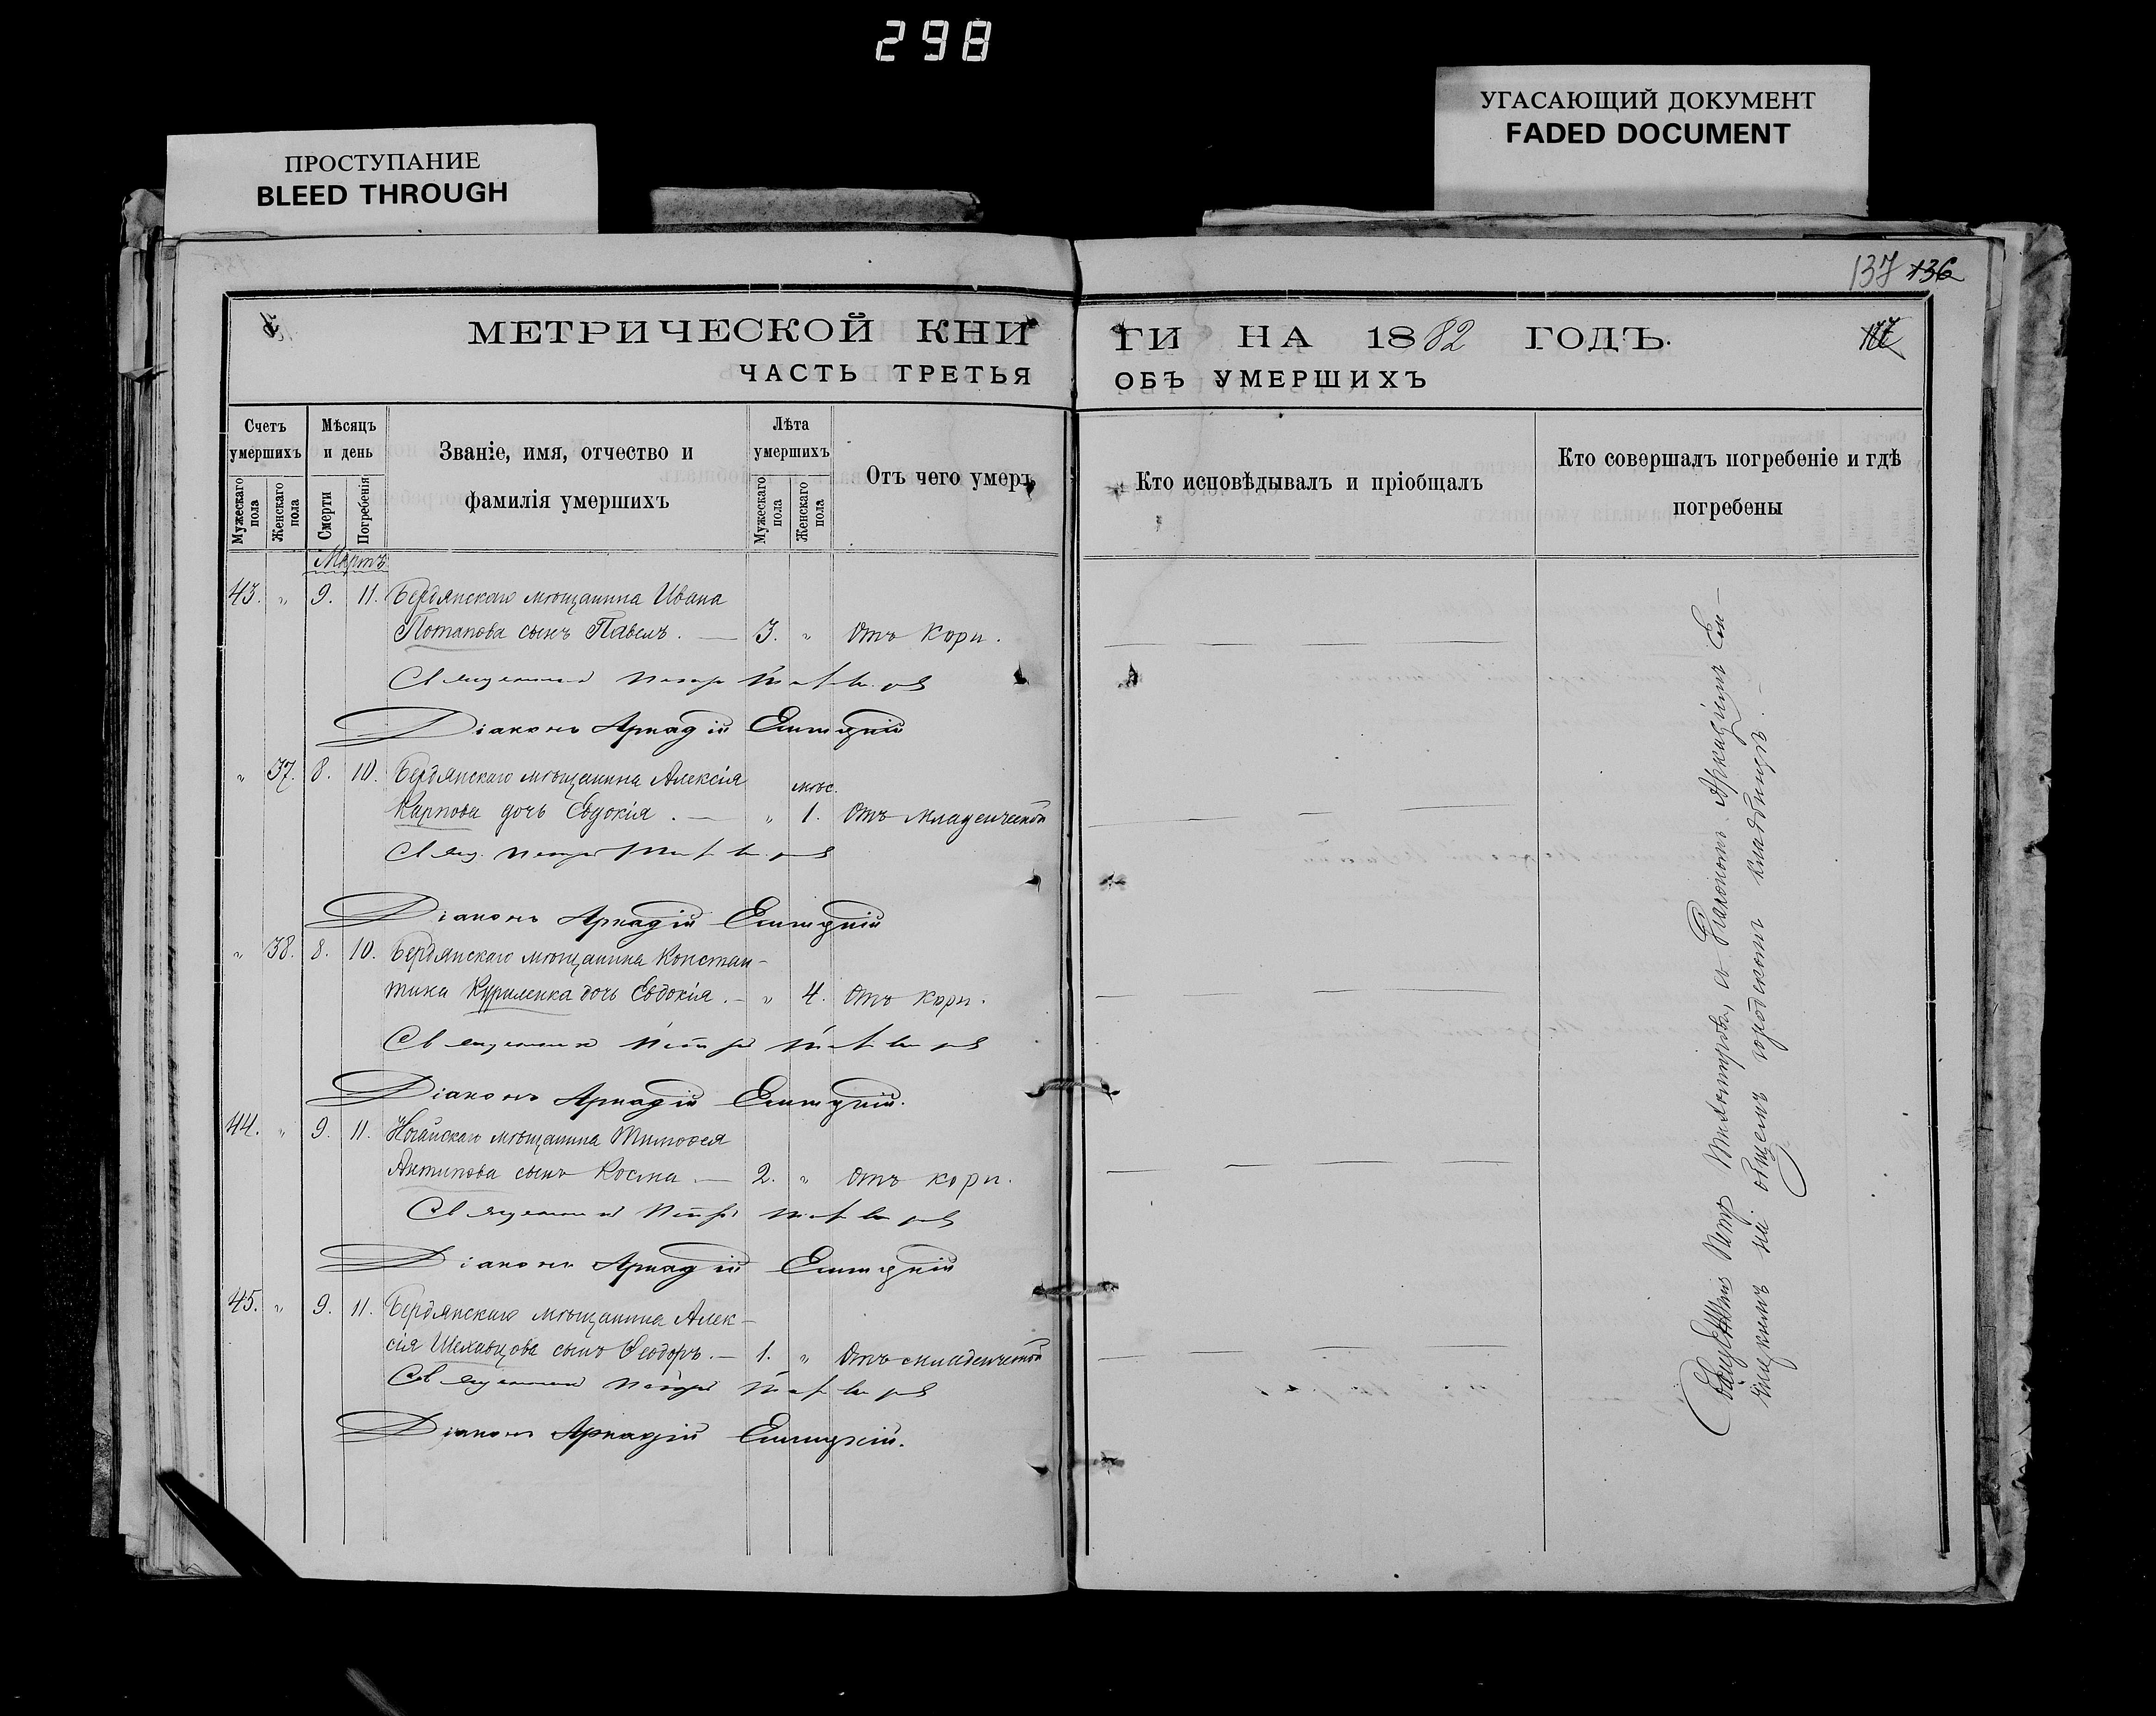 298
УГАСАЮЩИЙ ДОКУМЕНТ
FADED DOCUMENT
ПРОСТУПАНИЕ
BLEED THROUGH
137 136
МЕТРИЧЕСКОЙ КНИ
ГИ НА 1882 ГОДЪ.
ЧАСТЬ ТРЕТЬЯ
ОБЪ УМЕРШИХЪ
Счетъ умершихъ
Мужескаго пола
Женскаго пола
Мѣсяцъ и день
Смерти
Погребенія
Званіе, имя, отчество и
фамилія умершихъ
Лѣта умершихъ
Мужескаго пола
Женскаго пола
Отъ чего умеръ
Кто исповѣдывалъ и пріобщалъ
Кто совершалъ погребеніе и гдѣ
погребены
Мартъ
43. " 9. 11. Бердянскаго мѣщанина Ивана
Потапова сынъ Павелъ. — 3. " Отъ кори.
Священникъ Петръ
Діаконъ Аркадій Еницкій
" 37. 8. 10. Бердянскаго мѣщанина Алексія
мѣс.
Карпова дочь Евдокія. — " 1. Отъ младенческой
Свящ. Петръ
Діаконъ Аркадій Еницкій
" 38. 8. 10. Бердянскаго мѣщанина Констан-
тина Куриленка дочь Евдокія. — " 4. Отъ кори.
Священникъ Петръ
Діаконъ Аркадій Еницкій.
44. " 9. 11. Ногайскаго мѣщанина Тимоѳея
Антипова сынъ Косма. — 2. " Отъ кори.
Священникъ Петръ
Діаконъ Аркадій Еницкій
45. " 9. 11. Бердянскаго мѣщанина Алек-
сія Шехавцова сынъ Ѳеодоръ. — 1. " Отъ младенческой
Священникъ Петръ
Діаконъ Аркадій Еницкій.
Священникъ Петръ съ Діакономъ Аркадіемъ Ен-
ицкимъ на общемъ городскомъ кладбищѣ.